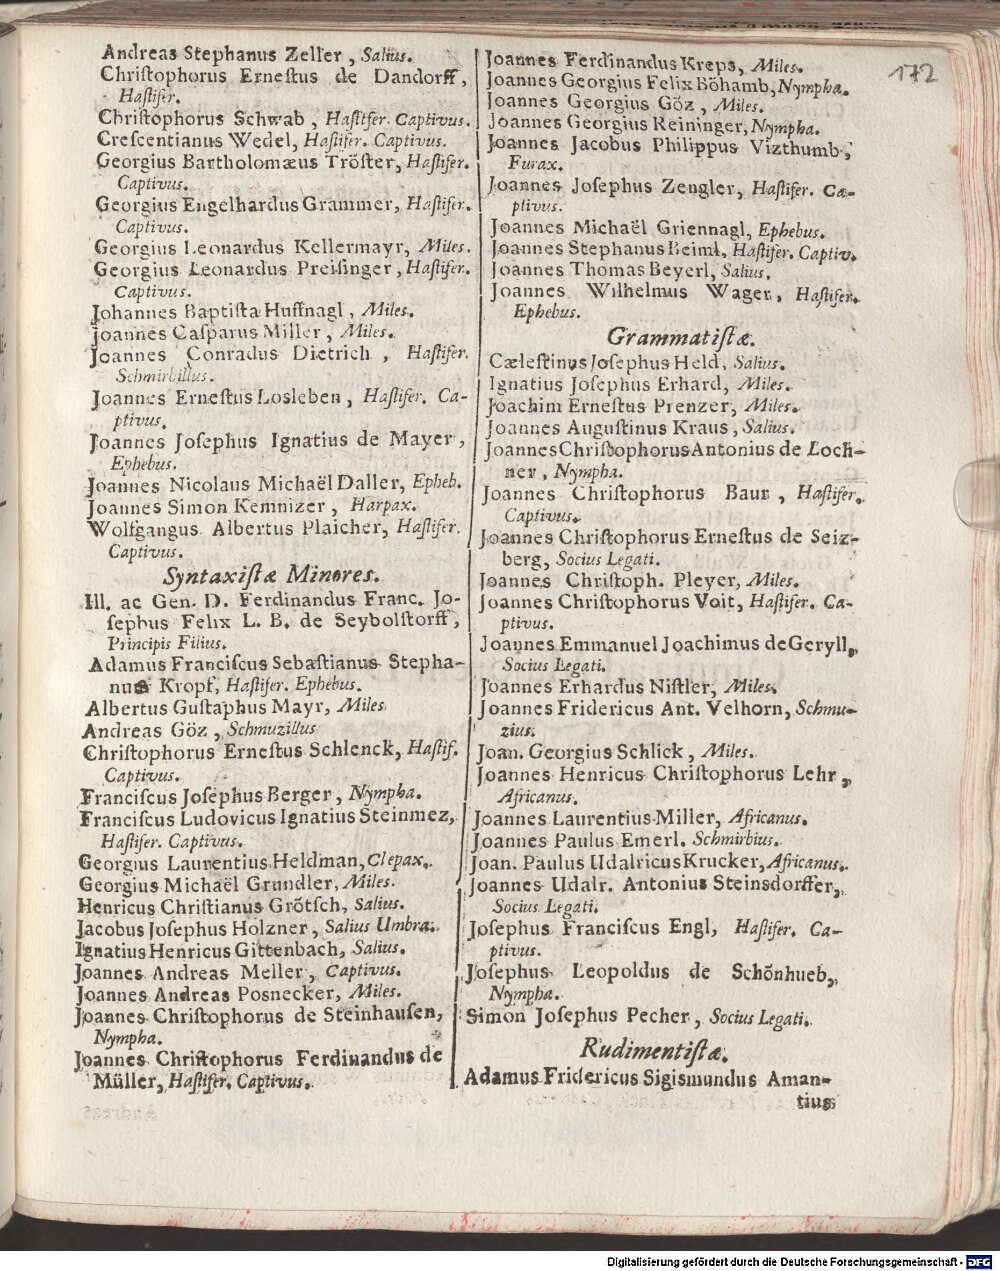 172
Andreas Stephanus Zeller, Salius.
Chriſtophorus Erneſtus de Dandorff,
Haſtifer.
Chriſtophorus Schwab, Haſtifer. Captivus.
Creſcentianus Wedel, Haſtifer. Captivus.
Georgius Bartholomæus Tröſter, Haſtifer.
Captivus.
Georgius Engelhardus Grammer, Haſtifer.
Captivus.
Georgius Leonardus Kellermayr, Miles.
Georgius Leonardus Preiſinger, Haſtifer.
Captivus.
Johannes Baptiſta Huffnagl, Miles.
Joannes Caſparus Miller, Miles.
Joannes Conradus Dietrich, Haſtifer.
Schmirbillus.
Joannes Erneſtus Losleben, Haſtifer. Ca-
ptivus.
Joannes Joſephus Ignatius de Mayer,
Ephebus.
Joannes Nicolaus Michaël Daller, Epheb.
Joannes Simon Kemnizer, Harpax.
Wolfgangus Albertus Plaicher, Haſtifer.
Captivus.
Syntaxiſtæ Minores.
Ill. ac Gen. D. Ferdinandus Franc. Jo-
ſephus Felix L. B. de Seybolſtorff,
Principis Filius.
Adamus Franciſcus Sebaſtianus Stepha-
nus Kropf, Haſtifer. Ephebus.
Albertus Guſtaphus Mayr, Miles
Andreas Göz, Schmuzillus
Chriſtophorus Erneſtus Schlenck, Haſtif.
Captivus.
Franciſcus Joſephus Berger, Nympha.
Franciſcus Ludovicus Ignatius Steinmez,
Haſtifer. Captivus.
Georgius Laurentius Heldman, Clepax.
Georgius Michaël Grundler, Miles.
Henricus Chriſtianus Grötſch, Salius.
Jacobus Joſephus Holzner, Salius Umbra.
Ignatius Henricus Gittenbach, Salius.
Joannes Andreas Meller, Captivus.
Joannes Andreas Posnecker, Miles.
Joannes Chriſtophorus de Steinhauſen,
Nympha.
Joannes Chriſtophorus Ferdinandus de
Müller, Haſtifer. Captivus.
Joannes Ferdinandus Kreps, Miles.
Joannes Georgius Felix Böhamb, Nympha.
Joannes Georgius Göz, Miles.
Joannes Georgius Reininger, Nympha.
Joannes Jacobus Philippus Vizthumb,
Furax.
Joannes Joſephus Zengler, Haſtifer. Ca-
ptivus.
Joannes Michaël Griennagl, Ephebus.
Joannes Stephanus Beiml, Haſtifer. Captiv.
Joannes Thomas Beyerl, Salius.
Joannes Wilhelmus Wager, Haſtifer.
Ephebus.
Grammatiſtæ.
Cæleſtinus Joſephus Held, Salius.
Ignatius Joſephus Erhard, Miles.
Joachim Erneſtus Prenzer, Miles.
Joannes Auguſtinus Kraus, Salius.
Joannes Chriſtophorus Antonius de Loch-
ner, Nympha.
Joannes Chriſtophorus Baur, Haſtifer.
Captivus.
Joannes Chriſtophorus Erneſtus de Seiz-
berg, Socius Legati.
Joannes Chriſtoph. Pleyer, Miles.
Joannes Chriſtophorus Voit, Haſtifer. Ca-
ptivus.
Joannes Emmanuel Joachimus de Geryll,
Socius Legati.
Joannes Erhardus Niſtler, Miles.
Joannes Fridericus Ant. Velhorn, Schmu-
zius.
Joan. Georgius Schlick, Miles.
Joannes Henricus Chriſtophorus Lehr,
Africanus.
Joannes Laurentius Miller, Africanus.
Joannes Paulus Emerl. Schmirbius.
Joan. Paulus Udalricus Krucker, Africanus.
Joannes Udalr. Antonius Steinsdorffer,
Socius Legati.
Joſephus Franciſcus Engl, Haſtifer. Ca-
ptivus.
Joſephus Leopoldus de Schönhueb,
Nympha.
Simon Joſephus Pecher, Socius Legati.
Rudimentiſtæ.
Adamus Fridericus Sigismundus Aman-
tius
Digitalisierung gefördert durch die Deutsche Forschungsgemeinschaft - DFG